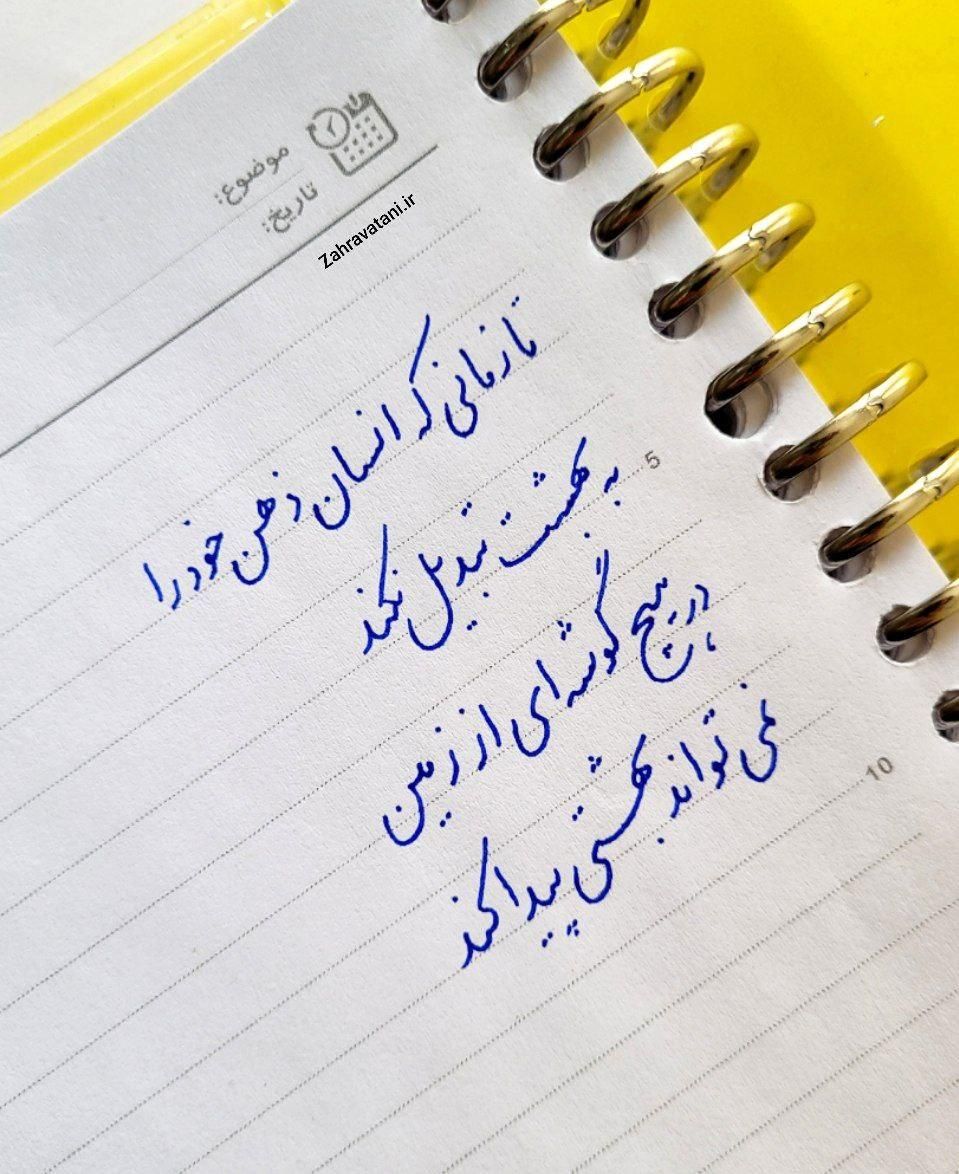 موضوع:
تاریخ:
Zahravatani.ir
تا زمانی که انسان ذهن خود را
به بهشت تبدیل نکند
5
در هیچ گوشه ای از زمین
نمی تواند بهشتی پیدا کند
10